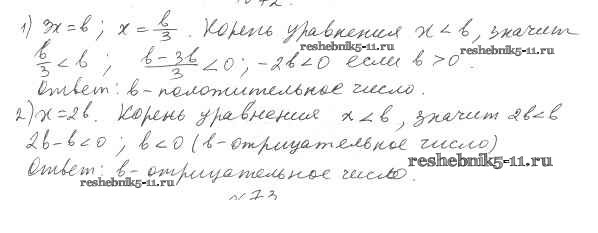 1) 3x=b; x=b/3. Корень уравнения x<b, значит
reshebnik5-11.ru reshebnik5-11.ru
b/3<b; (b-3b)/3<0; -2b<0 если b>0.
Ответ: b-положительное число.
2) x=2b. Корень уравнения x<b, значит 2b<b
2b-b<0; b<0 (b-отрицательное число)
reshebnik5-11.ru
Ответ: b-отрицательное число.
reshebnik5-11.ru
№73